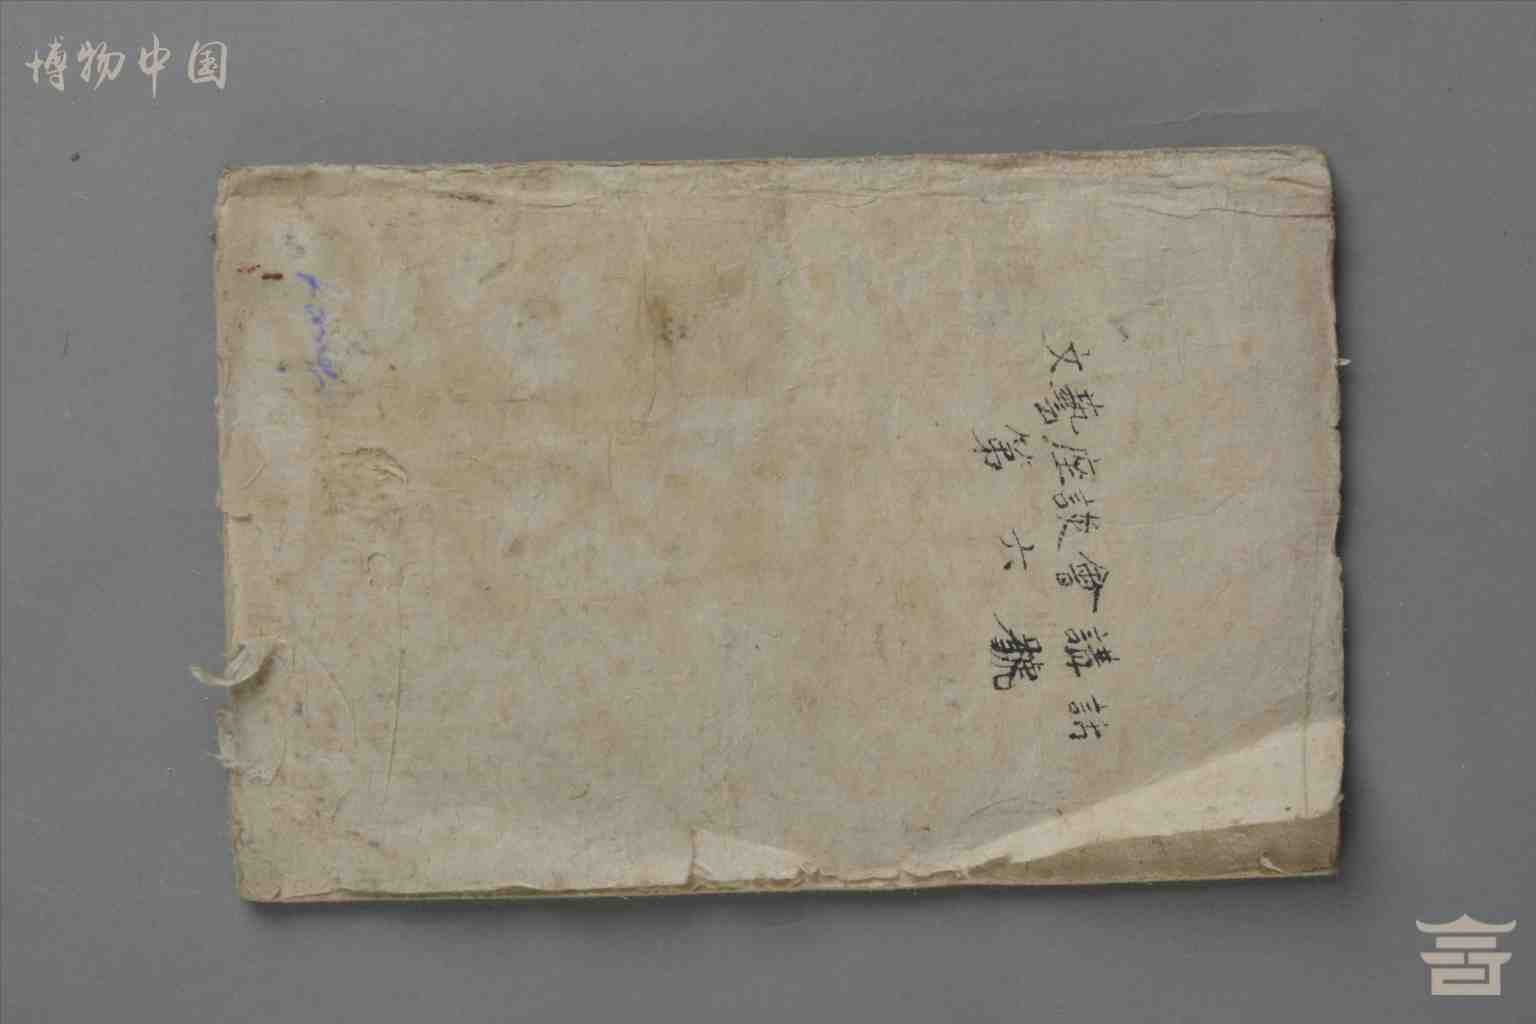 博物中国
文藝座談會講話
第六號